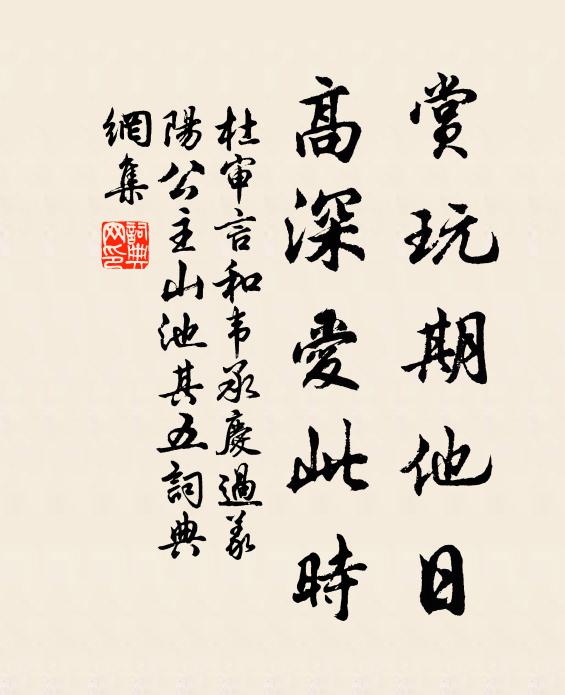 賞玩期他日
高深愛此時
杜审言和韦承慶過義
陽公主山池其五詞典
網集
詞典
网印